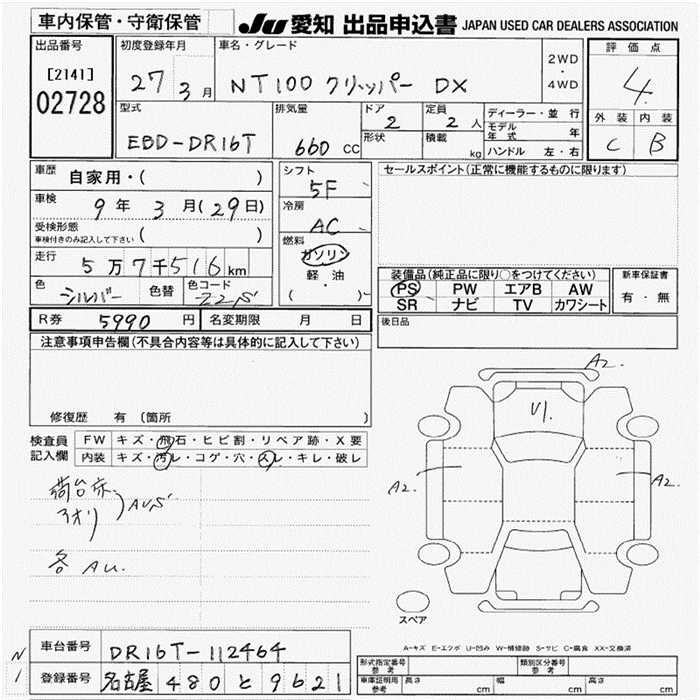 車内保管・守衛保管
JU 愛知 出品申込書 JAPAN USED CAR DEALERS ASSOCIATION
出品番号
[2141]
02728
初度登録年月
27 3 月
車名・グレード
NT100 クリッパー DX
2WD
・
4WD
評価点
4
外装 内装
C B
型式
EBD-DR16T
排気量
660 CC
ドア
2
形状
定員
2 人
積載
kg
ディーラー・並行
モデル年式 年
ハンドル 左・右
車歴
自家用・( )
車検
9 年 3 月(29日)
受検形態
車検付きのみ記入して下さい ( )
走行
5 万 7 千 516 km
色
シルバー
色替
色コード
シフト
5F
冷房
AC
燃料
ガソリン
軽油
・
( )
セールスポイント(正常に機能するものに限ります)
装備品(純正品に限り○をつけてください)
PS PW エアB AW
SR ナビ TV カワシート
新車保証書
有・無
後日品
R券 5990 円
名変期限 月 日
注意事項申告欄(不具合内容等は具体的に記入して下さい)
修復歴 有 〔箇所 〕
検査員
記入欄
FW キズ・飛石・ヒビ割・リペア跡・X要
内装 キズ・汚レ・コゲ・穴・スレ・キレ・破レ
荷台床
アオリ
各 AU.
A2.
V1.
A2.
A2.
スペア
A-キズ E-エクボ U-凹み W-補修跡 S-サビ C-腐食 XX-交換済
N
1
車台番号 DR16T-112464
登録番号 名古屋 480 と 9621
型式指定番号
参考
類別区分番号
参考
車庫証明用
参考
長さ cm
幅 cm
高さ cm